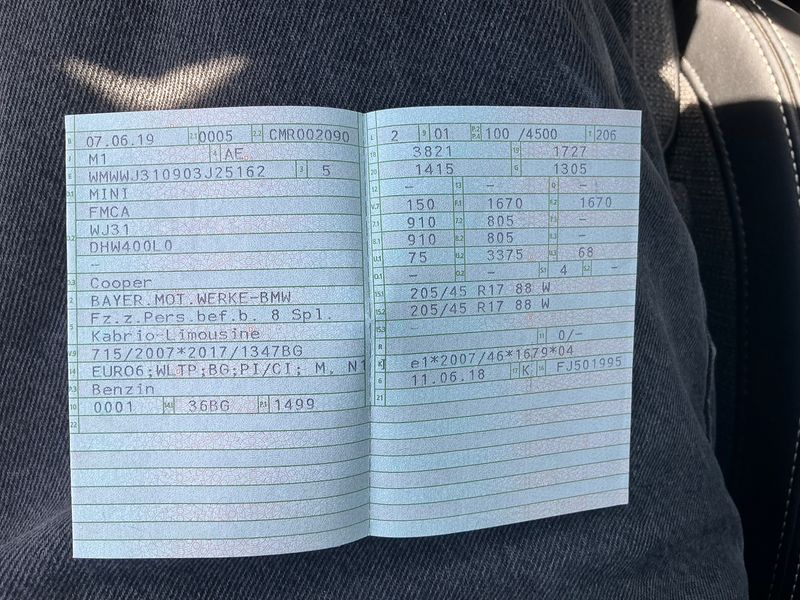 B 07.06.19 2.1 0005 2.2 CMR002090
J M1 4 AE
E WMWWJ310903J25162 3 5
D.1 MINI
FMCA
D.2 WJ31
DHW400L0
–
D.3 Cooper
2 BAYER.MOT.WERKE-BMW
5 Fz.z.Pers.bef.b. 8 Spl.
Kabrio-Limousine
V.9 715/2007*2017/1347BG
14 EURO6;WLTP;BG;PI/CI; M, N1
P.3 Benzin
10 0001 14.1 36BG P.1 1499
22
L 2 9 01 P.2 P.4 100 /4500 T 206
18 3821 19 1727
20 1415 G 1305
12 – 13 – Q –
V.7 150 F.1 1670 F.2 1670
7.1 910 7.2 805 –
8.1 910 8.2 805 –
U.1 75 U.2 3375 U.3 68
O.1 – O.2 – S.1 4 S.2 –
15.1 205/45 R17 88 W
15.2 205/45 R17 88 W
15.3 –
R 11 0/–
K e1*2007/46*1679*04
6 11.06.18 17 K 16 FJ501995
21